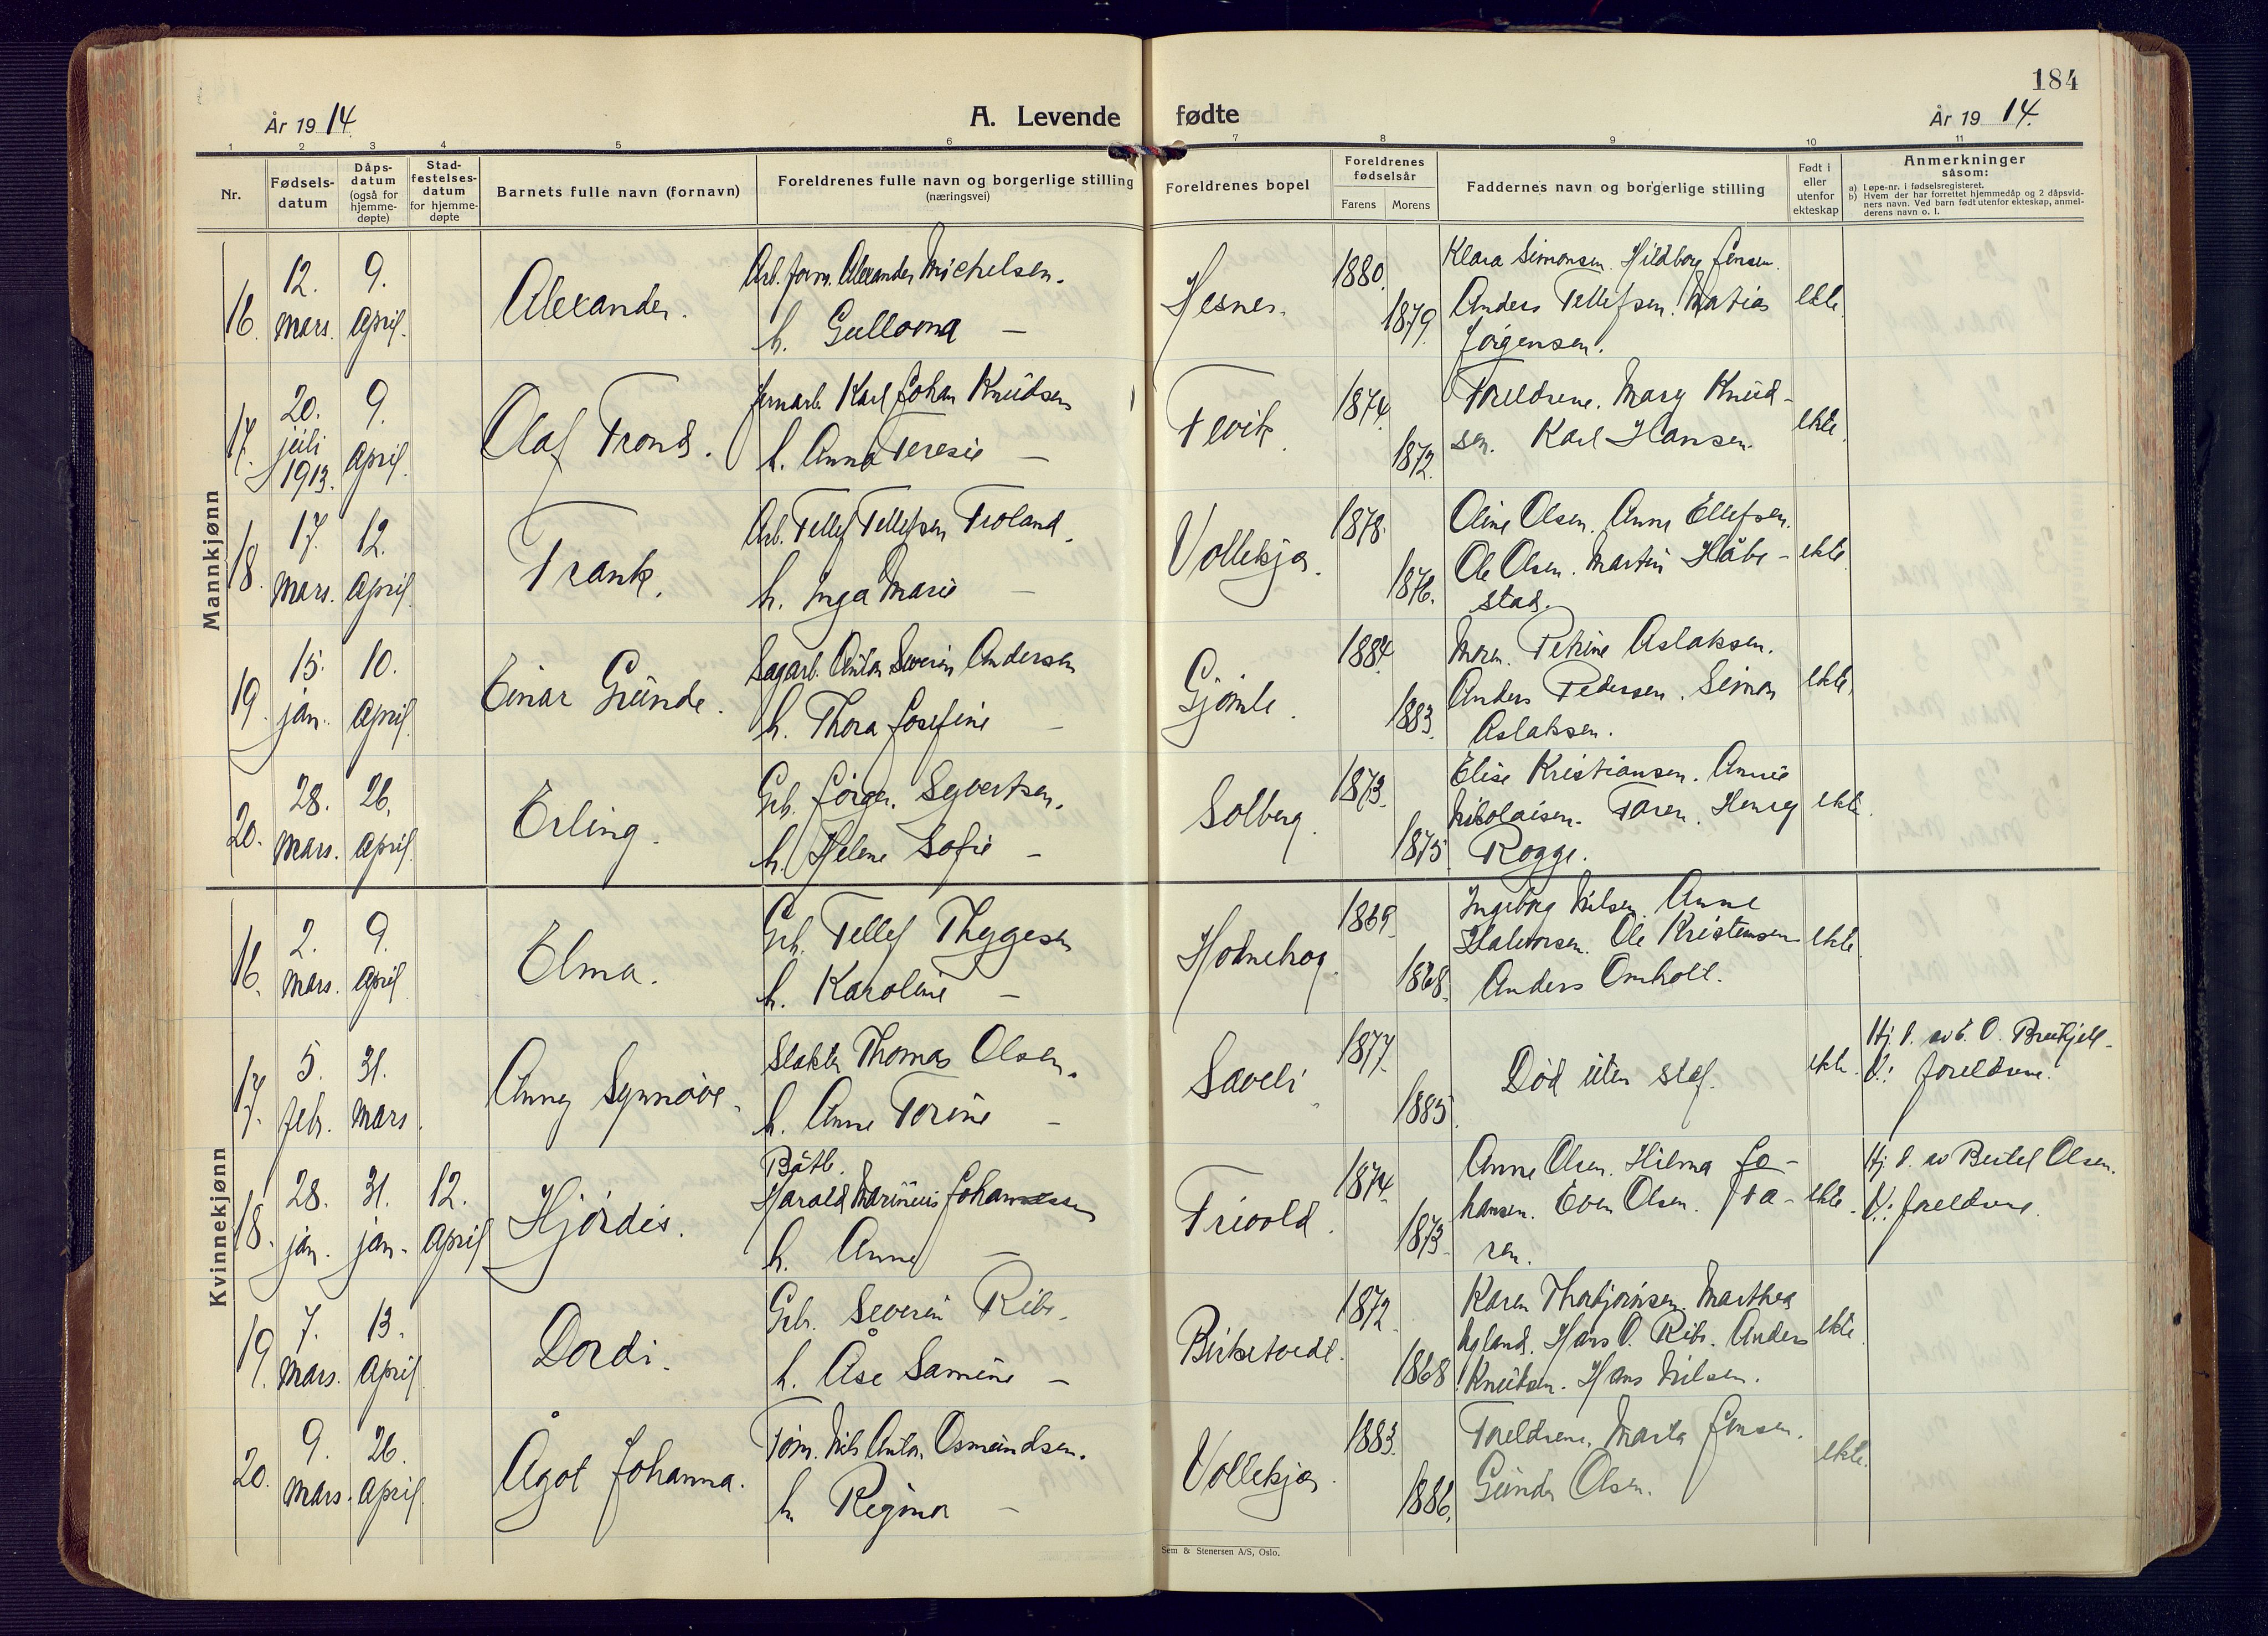 184
År 19 14.
A. Levende fødte
År 19 14.
1 2 3 4 5 6 7 8 9 10 11
Nr.
Fødsels-
datum
Dåps-
datum
(også for
hjemme-
døpte)
Stad-
festelses-
datum
for hjemme-
døpte
Barnets fulle navn (fornavn)
Foreldrenes fulle navn og borgerlige stilling
(næringsvei)
Foreldrenes bopel
Foreldrenes
fødselsår
Farens Morens
Faddernes navn og borgerlige stilling
Født i
eller
utenfor
ekteskap
Anmerkninger
såsom:
a) Løpe-nr. i fødselsregisteret.
b) Hvem der har forrettet hjemmedåp og 2 dåpsvid-
ners navn. Ved barn født utenfor ekteskap, anmel-
derens navn o. l.
Mannkjønn
16. 12. mars. 9. april. Alexander.
Arb. form. Alexander Michelsen.
h. Gullovna —
Hesnes. 1880. 1879.
Klara Simonsen. Hildborg Jensen.
Anders Tellefsen. Matias
Jørgensen.
ekte
17. 20. juli 1913. 9. april. Olaf Trond.
Jernarb. Karl Johan Knudsen
h. Anna Teresie —
Fevik. 1874. 1872.
Foreldrene. Mary Knud-
sen. Karl Hansen.
ekte.
18. 17. mars. 12. april. Frank.
Arb. Tellef Tellefsen Froland.
h. Inga Marie —
Vollekjær. 1878. 1876.
Oline Olsen. Anne Ellefsen.
Ole Olsen. Martin Håbe-
stad.
ekte
19. 15. jan. 10. april. Einar Gunde.
Sagarb. Anton Severin Andersen
h. Thora Josefine —
Gjømle. 1884. 1883.
Moren. Petrine Aslaksen.
Anders Pedersen. Simon
Aslaksen.
ekte.
20. 28. mars. 26. april. Erling.
Grb. Jørgen Syvertsen.
h. Helene Sofie —
Solberg. 1873. 1875
Elise Kristiansen. Annie
Nikolaisen. Faren. Henry
Rogge.
ekte.
Kvinnekjønn
16. 2. mars. 9. april Elma.
Grb. Tellef Thygesen
h. Karoline —
1869. 1868.
Ingeborg Nilsen. Anne
Halvorsen. Ole Kristensen
Anders Omholt.
ekte.
17. 5. febr. 31. mars. Anny Synnøve.
Slakter Thomas Olsen.
h. Anne Torine —
Saveli. 1877. 1885.
Død uten staf.
ekte.
Hj. d. av E. O. Breikjell
V: foreldrene.
18. 28. jan. 31. jan. 12. april Hjørdis.
Båtb.
Harald Marinius Johannessen
h. Anne —
Trivold. 1874. 1873.
Anne Olsen. Hilma Jo-
hansen. Even Olsen. Fa-
ren.
ekte.
Hj. d. av Bertel Olsen.
V: foreldrene.
19. 7. mars. 13. april Dordi.
Grb. Severin Ribe.
h. Åse Samine —
Birketveit. 1872. 1868
Karen Thorbjørnsen. Marthea
Agland. Hans O. Ribe. Anders
Knudsen. Hans Nilsen.
ekte.
20. 9. mars. 26. april. Ågot Johanna.
Tøm. Nils Anton Osmundsen.
h. Regina —
Vollekjær. 1883. 1886.
Foreldrene, Marta Jensen.
Gunder Olsen.
ekte.
Sem & Stenersen A/S, Oslo.